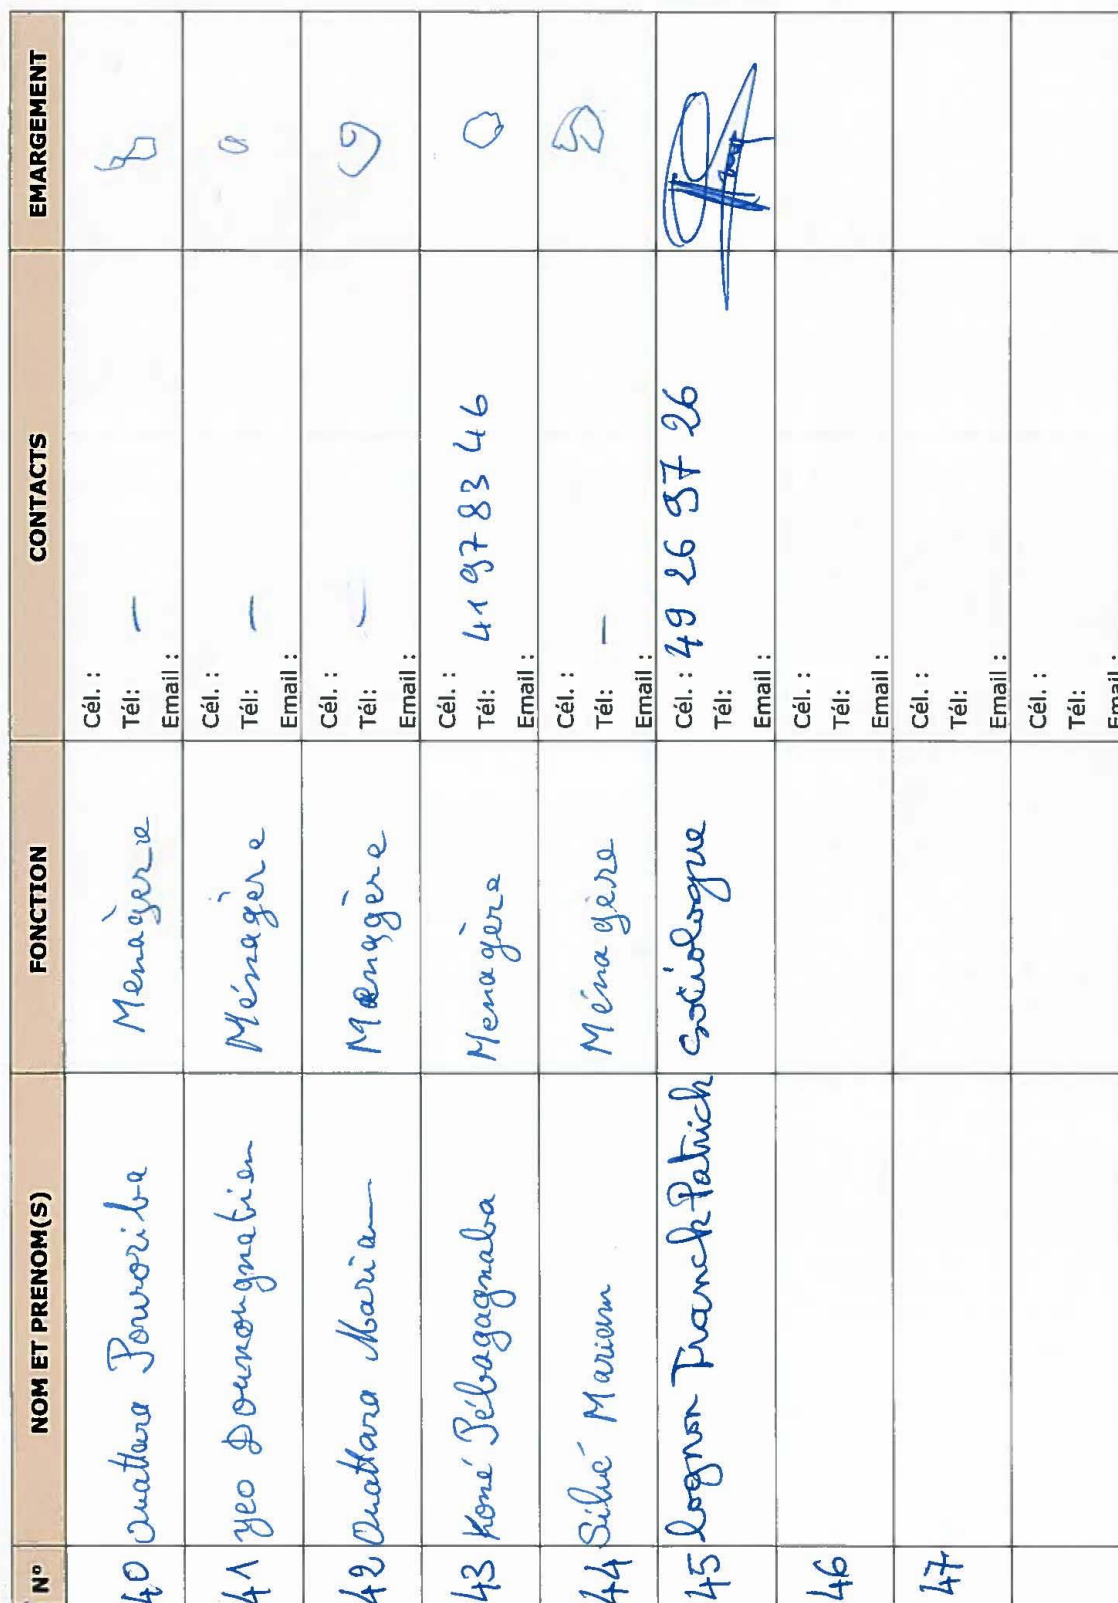 N° NOM ET PRENOM(S) FONCTION CONTACTS EMARGEMENT
40 Ouattara Pouroriba Menagère Cél. :
Tél: —
Email :
41 Yeo Dounougnatien Ménagère Cél. :
Tél: —
Email :
42 Ouattara Mariam Menagère Cél. :
Tél: —
Email :
43 Koné Pébagagnaba Menagère Cél. :
Tél: 41 97 83 46
Email :
44 Silué Mariam Ménagère Cél. :
Tél: —
Email :
45 Lognon Franck Patrick Sociologue Cél. : 49 26 97 26
Tél:
Email :
46 Cél. :
Tél:
Email :
47 Cél. :
Tél:
Email :
Cél. :
Tél:
Email :